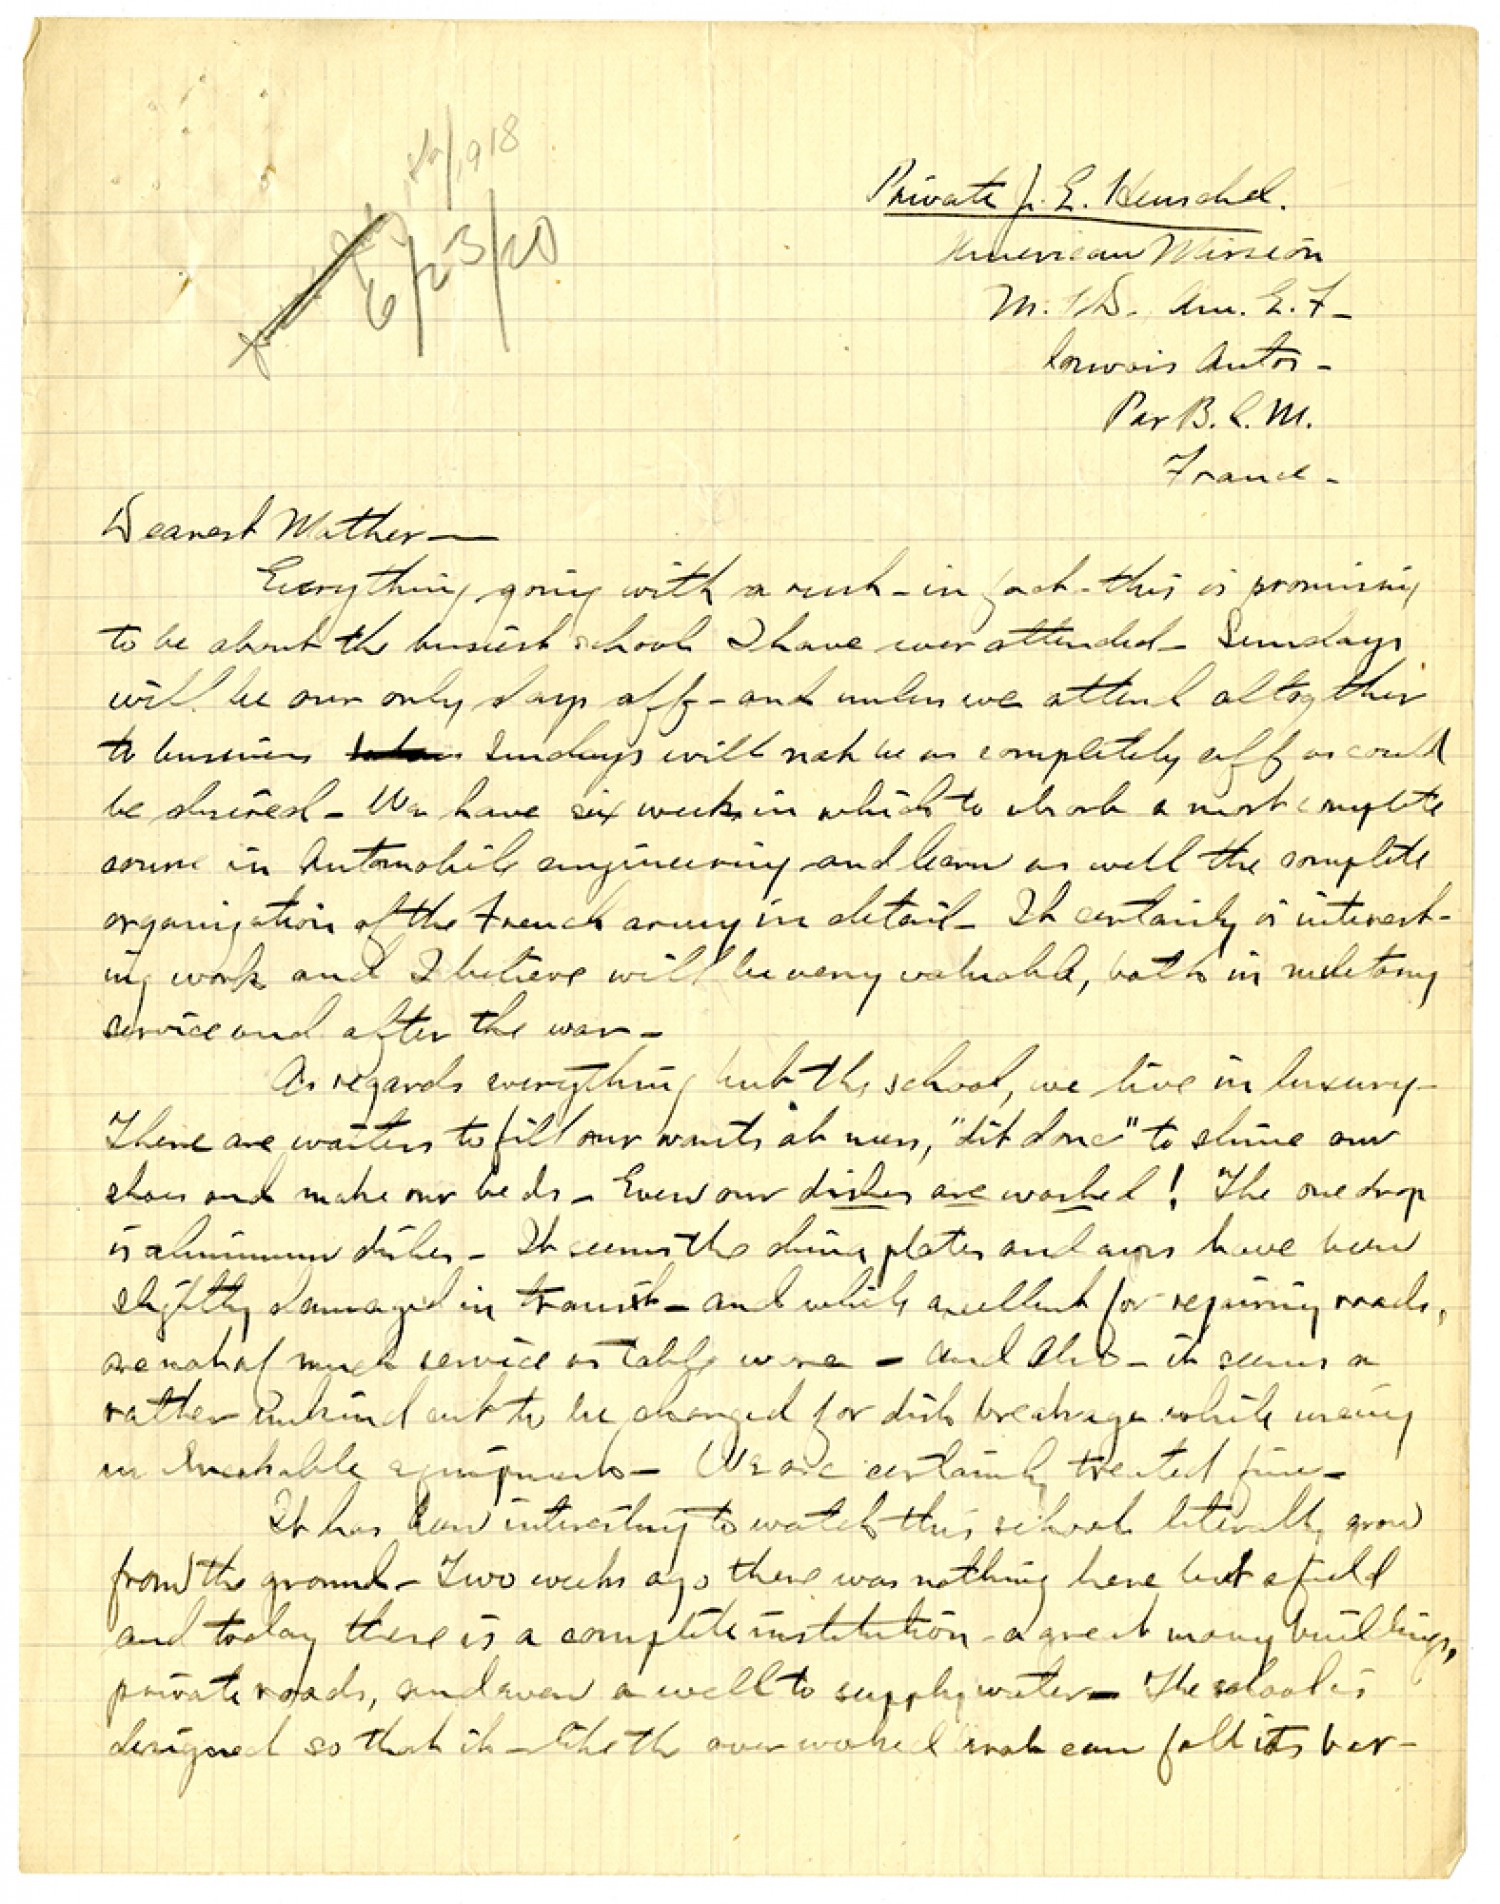 1918
6/23/20
Private J. E. Henschel.
American Mission
M. T. D. Am. E. F -
Convois Autos -
Par B. C. M.
France -
Dearest Mother —
Everything going with a rush - in fact - this is promising
to be about the busiest school I have ever attended - Sundays
will be our only days off - and unless we attend altogether
to business Sundays will not be as completely off as could
be desired - We have six weeks in which to absorb a most complete
course in Automobile engineering and learn as well the complete
organization of the French army in detail - It certainly is interest-
ing work and I believe will be very valuable, both in miletary
service and after the war -
As regards everything but the school, we live in luxury -
There are waiters to fill our wants at mess, "" to shine our
shoes and make our beds - Even our dishes are washed! The one drop
is aluminum dishes - It seems the china plates and cups have been
slightly damaged in transit - and while excellent for repairing roads,
are not of much service as table ware - and also - it seems a
rather unkind cut to be charged for dish breakage while using
unbreakable equipment - We are certainly treated fine -
It has been interesting to watch this school literally grow
from the ground - Two weeks ago there was nothing here but a field
and today there is a complete institution - a great many buildings,
private roads, and even a well to supply water - The school is
designed so that it - like the over worked Arab can fold its ter-